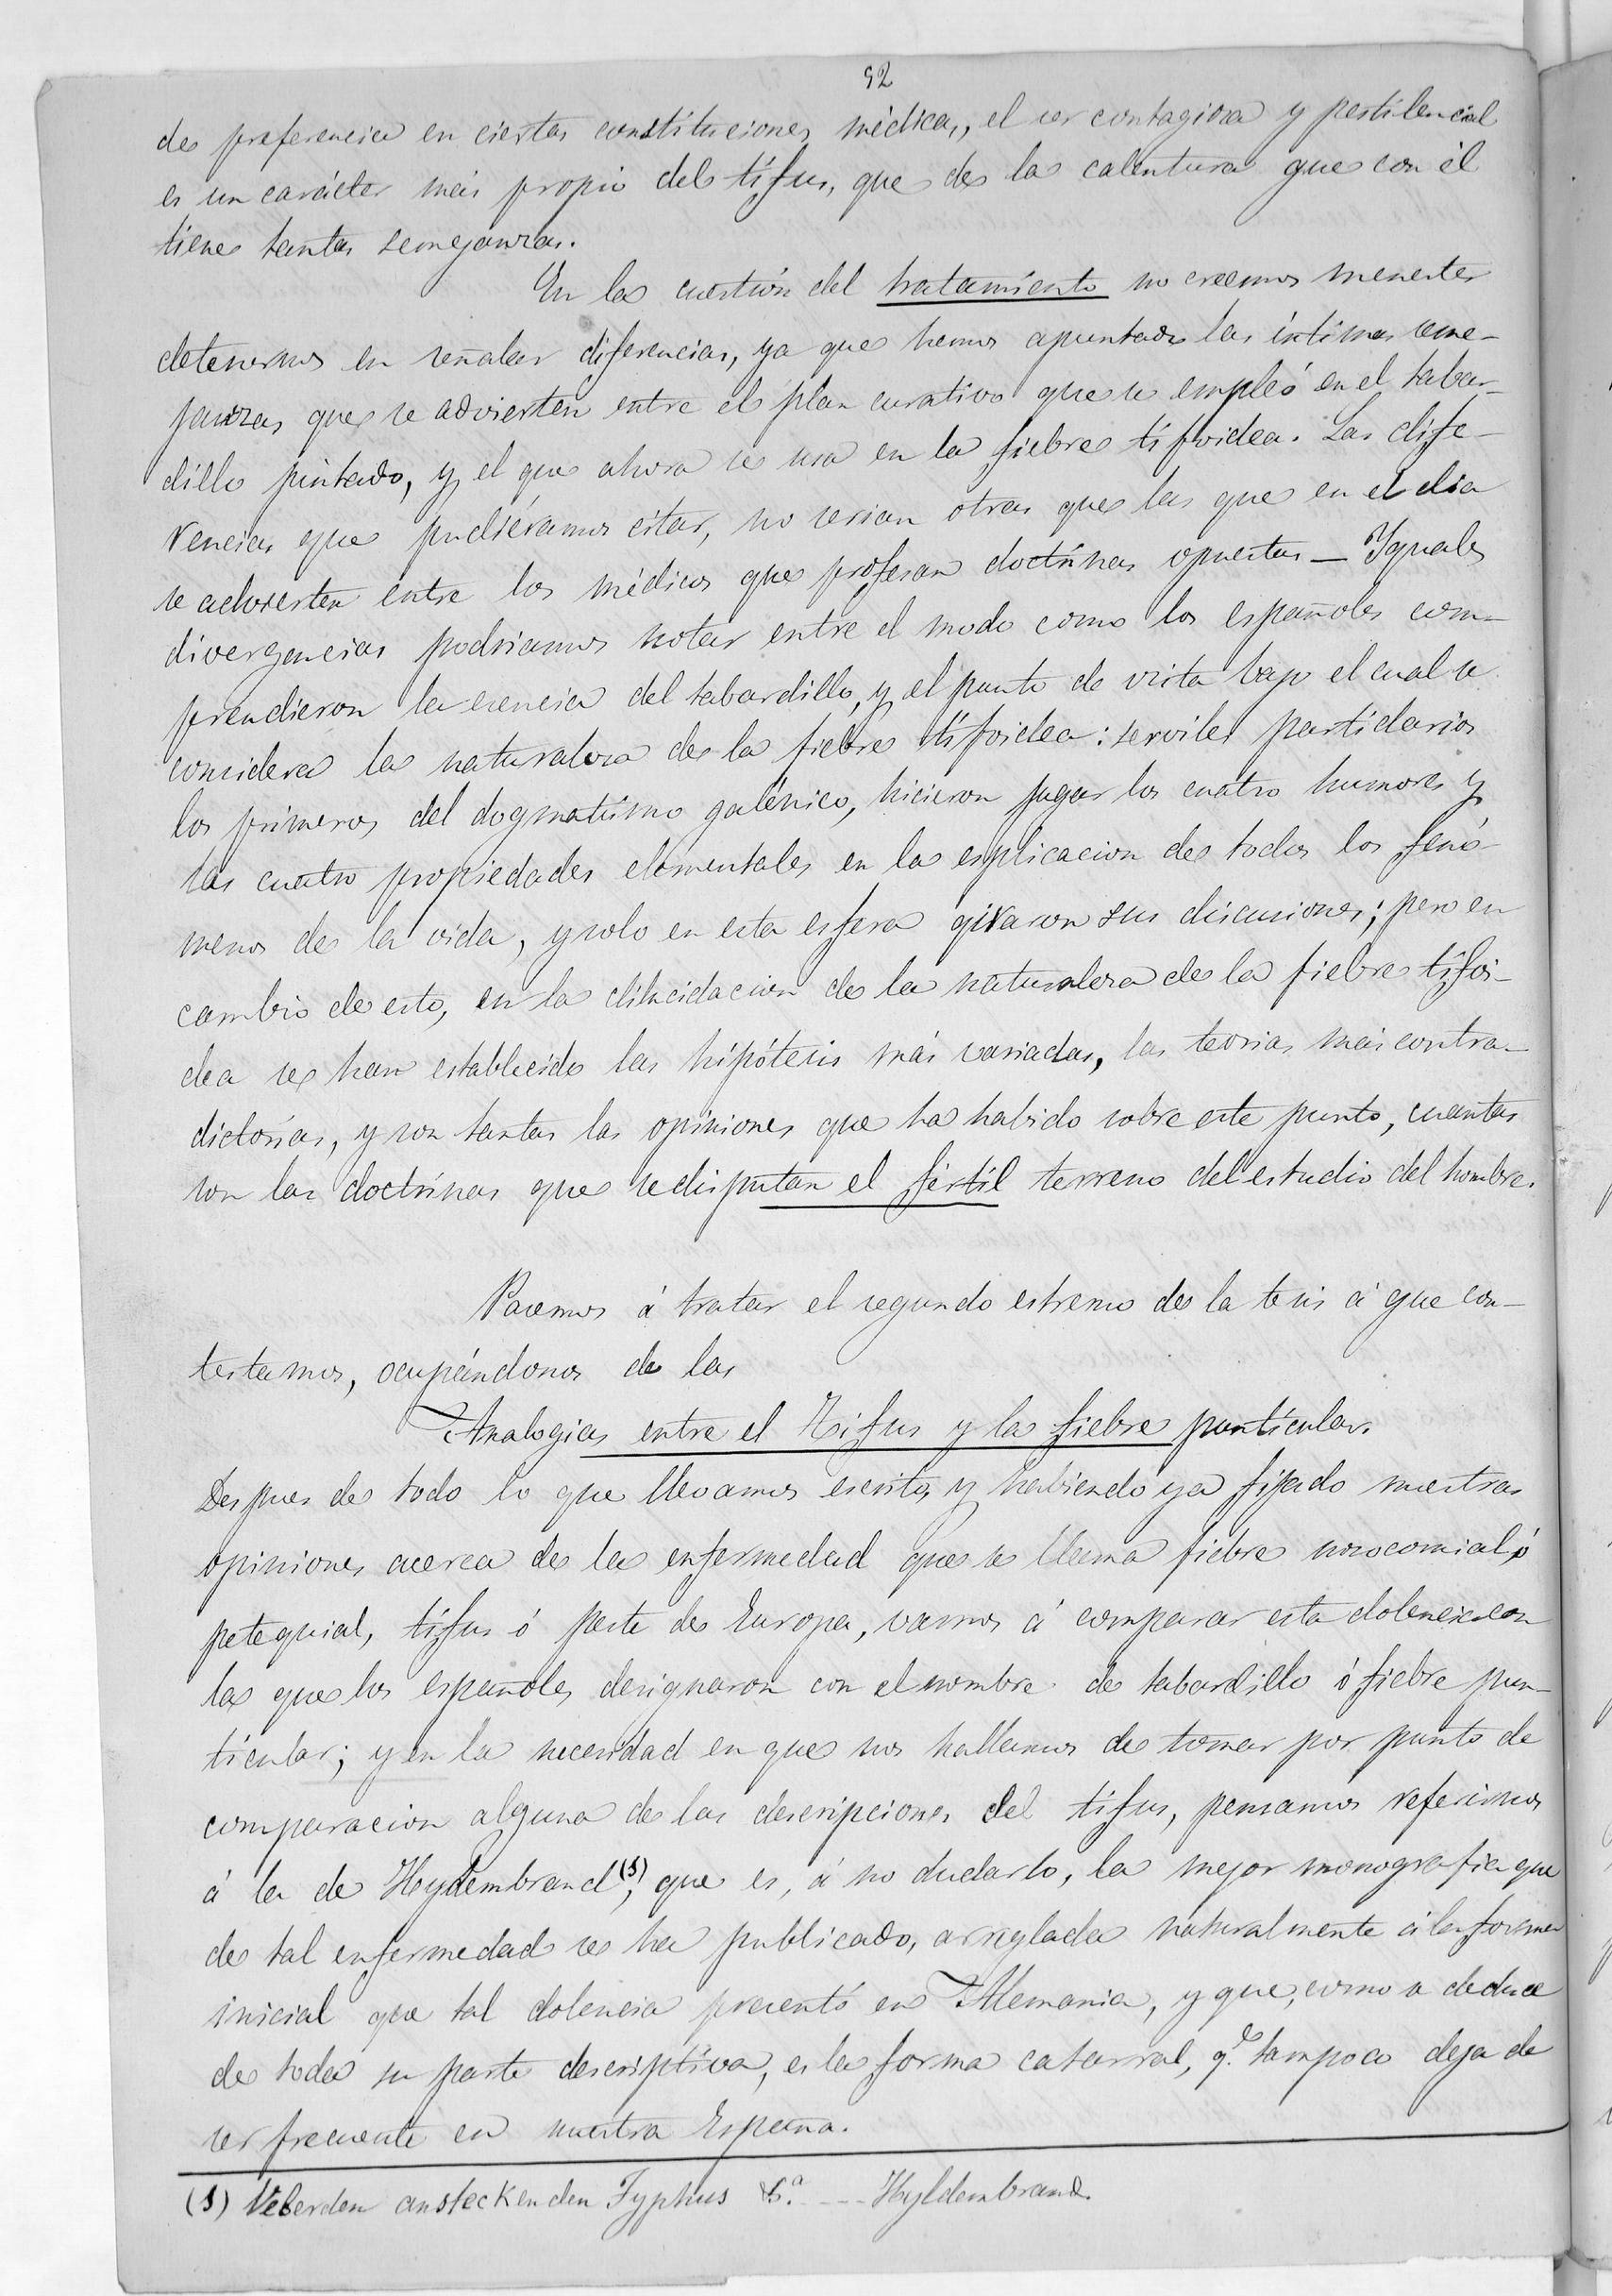 92
de preferencia en ciertas constituciones médicas, el ser contagiosa y pestilencial
es un carácter más propio del tífus, que de la calentura que con él
tiene tantas semejanzas.
En la cuestión del tratamiento no creemos menester
detenernos en señalar diferencias, ya que hemos apuntado las íntimas seme-
janzas que se advierten entre el plan curativo que se empleó en el tabar-
dillo pintado, y el que ahora se usa en la fiebre tifoidea. Las dife-
rencias que pudiéramos citar, no serian otras que las que en el dia
se advierten entre los médicos que profesan doctrinas opuestas — Yguales
divergencias podriamos notar entre el modo como los españoles com-
prendieron la esencia del tabardillo, y el punto de vista bajo el cual se
considera la naturaleza de la fiebre tifoidea: serviles partidarios
los primeros del dogmatismo galénico, hicieron jugar los cuatro humores y
las cuatro propiedades elementales en la esplicacion de todos los fenó-
menos de la vida, y solo en esta esfera giraron sus discusiones; pero en
cambio de esto, en la dilucidacion de la naturaleza de la fiebre tifoi-
dea se han establecido las hipótesis más variadas, las teorias más contra-
dictorias, y son tantas las opiniones que ha habido sobre este punto, cuantas
son las doctrinas que se disputan el fértil terreno del estudio del hombre.
Pasemos á tratar el segundo estremo de la tesis á que con-
testamos, ocupándonos de las
Analogias entre el Tifus y la fiebre puntícular.
Despues de todo lo que llevamos escrito, y habiendo ya fijado nuestras
opiniones acerca de la enfermedad que se llama fiebre nosocomial, ó
petequial, tífus ó peste de Europa, vamos á comparar esta dolencia con
la que los españoles designaron con el nombre de tabardillo ó fiebre pun-
tícular; y en la necesidad en que nos hallamos de tomar por punto de
comparacion alguna de las descripciones del tífus, pensamos referirnos
á la de Hyldembrand (1), que es, á no dudarlo, la mejor monografia que
de tal enfermedad se ha publicado, arreglada naturalmente á la forma
inicial que tal dolencia presentó en Alemania, y que, como se deduce
de toda su parte descriptiva, es la forma catarral, q.e tampoco deja de
ser frecuente en nuestra España.
(1) Ueberden ansteckenden Typhus &.a --- Hyldembrand.